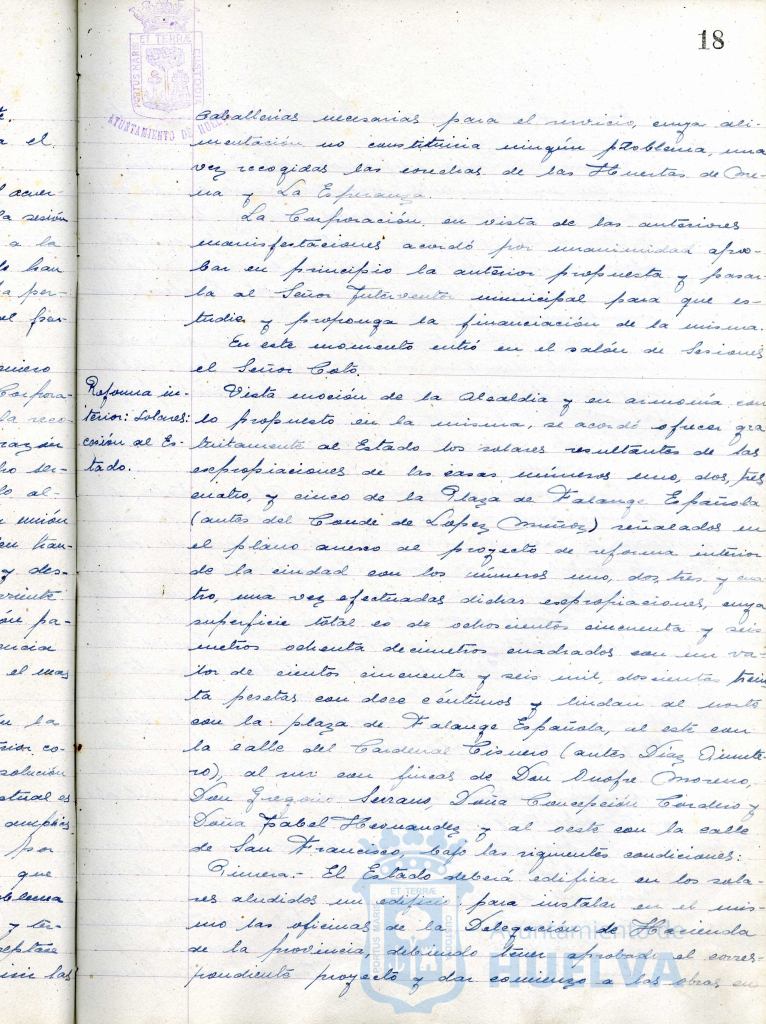 18
PORTUS MARIS ET TERRÆ CUSTODIA
AYUNTAMIENTO DE HUELVA
caballerias necesarias para el servicio, cuya ali-
mentación no constituiria ningún problema, una
vez recogidas las conchas de las Huertas de Me-
na y La Esperanza.
La Corporación, en vista de las anteriores
manifestaciones acordó por unanimidad apro-
bar en principio la anterior propuesta y pasar-
la al Señor Interventor municipal para que es-
tudie y proponga la financiación de la misma.
En este momento entró en el salón de Sesiones
el Señor Coto.
Reforma in-
terior: Solares:
cesión al Es-
tado.
Vista moción de la Alcaldia y en armonía con
lo propuesto en la misma, se acordó ofrecer gra
tuitamente al Estado los solares resultantes de las
expropiaciones de las casas números uno, dos, tres
cuatro, y cinco de la Plaza de Falange Española
(antes del Conde de Lopez Muñoz) señalados en
el plano anexo al proyecto de reforma interior
de la ciudad con los números uno, dos, tres y cua
tro, una vez efectuadas dichas expropiaciones, cuya
superficie total es de ochocientos cincuenta y seis
metros ochenta decimetros cuadrados con un va-
lor de cientos cincuenta y seis mil, doscientas trein
ta pesetas con doce céntimos y lindan al norte
con la plaza de Falange Española, al este con
la calle del Cardenal Cisnero (antes Díaz Quinte-
ro), al sur con fincas de Don Onofre Moreno,
Don Gregorio Serrano, Doña Concepción Cordero y
Doña Isabel Hernandez y al oeste con la calle
de San Francisco, bajo las siguientes condiciones:
Primera.- El Estado deberá edificar en los sola-
res aludidos un edificio para instalar en el mis-
mo las oficinas de la Delegación de Hacienda
de la provincia, debiendo tener aprobado el corres-
pondiente proyecto y dar comienzo a las obras en
PORTUS MARIS ET TERRÆ CUSTODIA
Ayuntamiento de
HUELVA